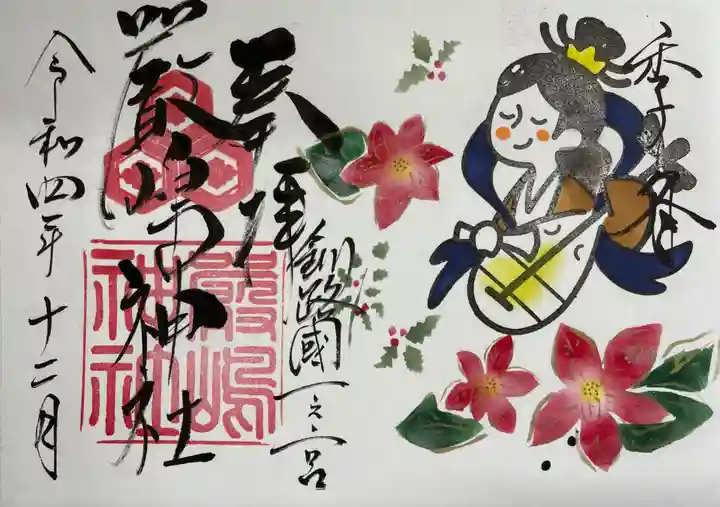 季月
奉拝
釧路國一之宮
厳嶋神社
厳嶋
神社
令和四年十二月